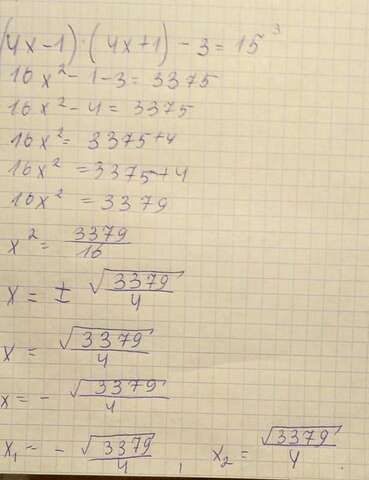 (4x-1)·(4x+1)-3=15³
16x²-1-3=3375
16x²-4=3375
16x²=3375+4
16x²=3375+4
16x²=3379
x²=3379/16
x=±√3379/4
x=√3379/4
x=-√3379/4
x₁=-√3379/4, x₂=√3379/4